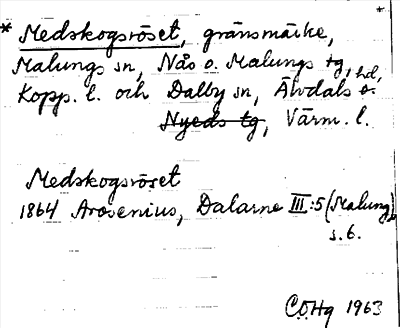 * Medskogsröset, gränsmärke,
Malungs sn, Nås o. Malungs tg,
Kopp. l. och Dalby sn, Älvdals hd, o.
Nyeds tg, Värm. l.
Medskogsröset
1864 Arosenius, Dalarne III:5 (Malung)
s. 6.
C.O.Hg 1963